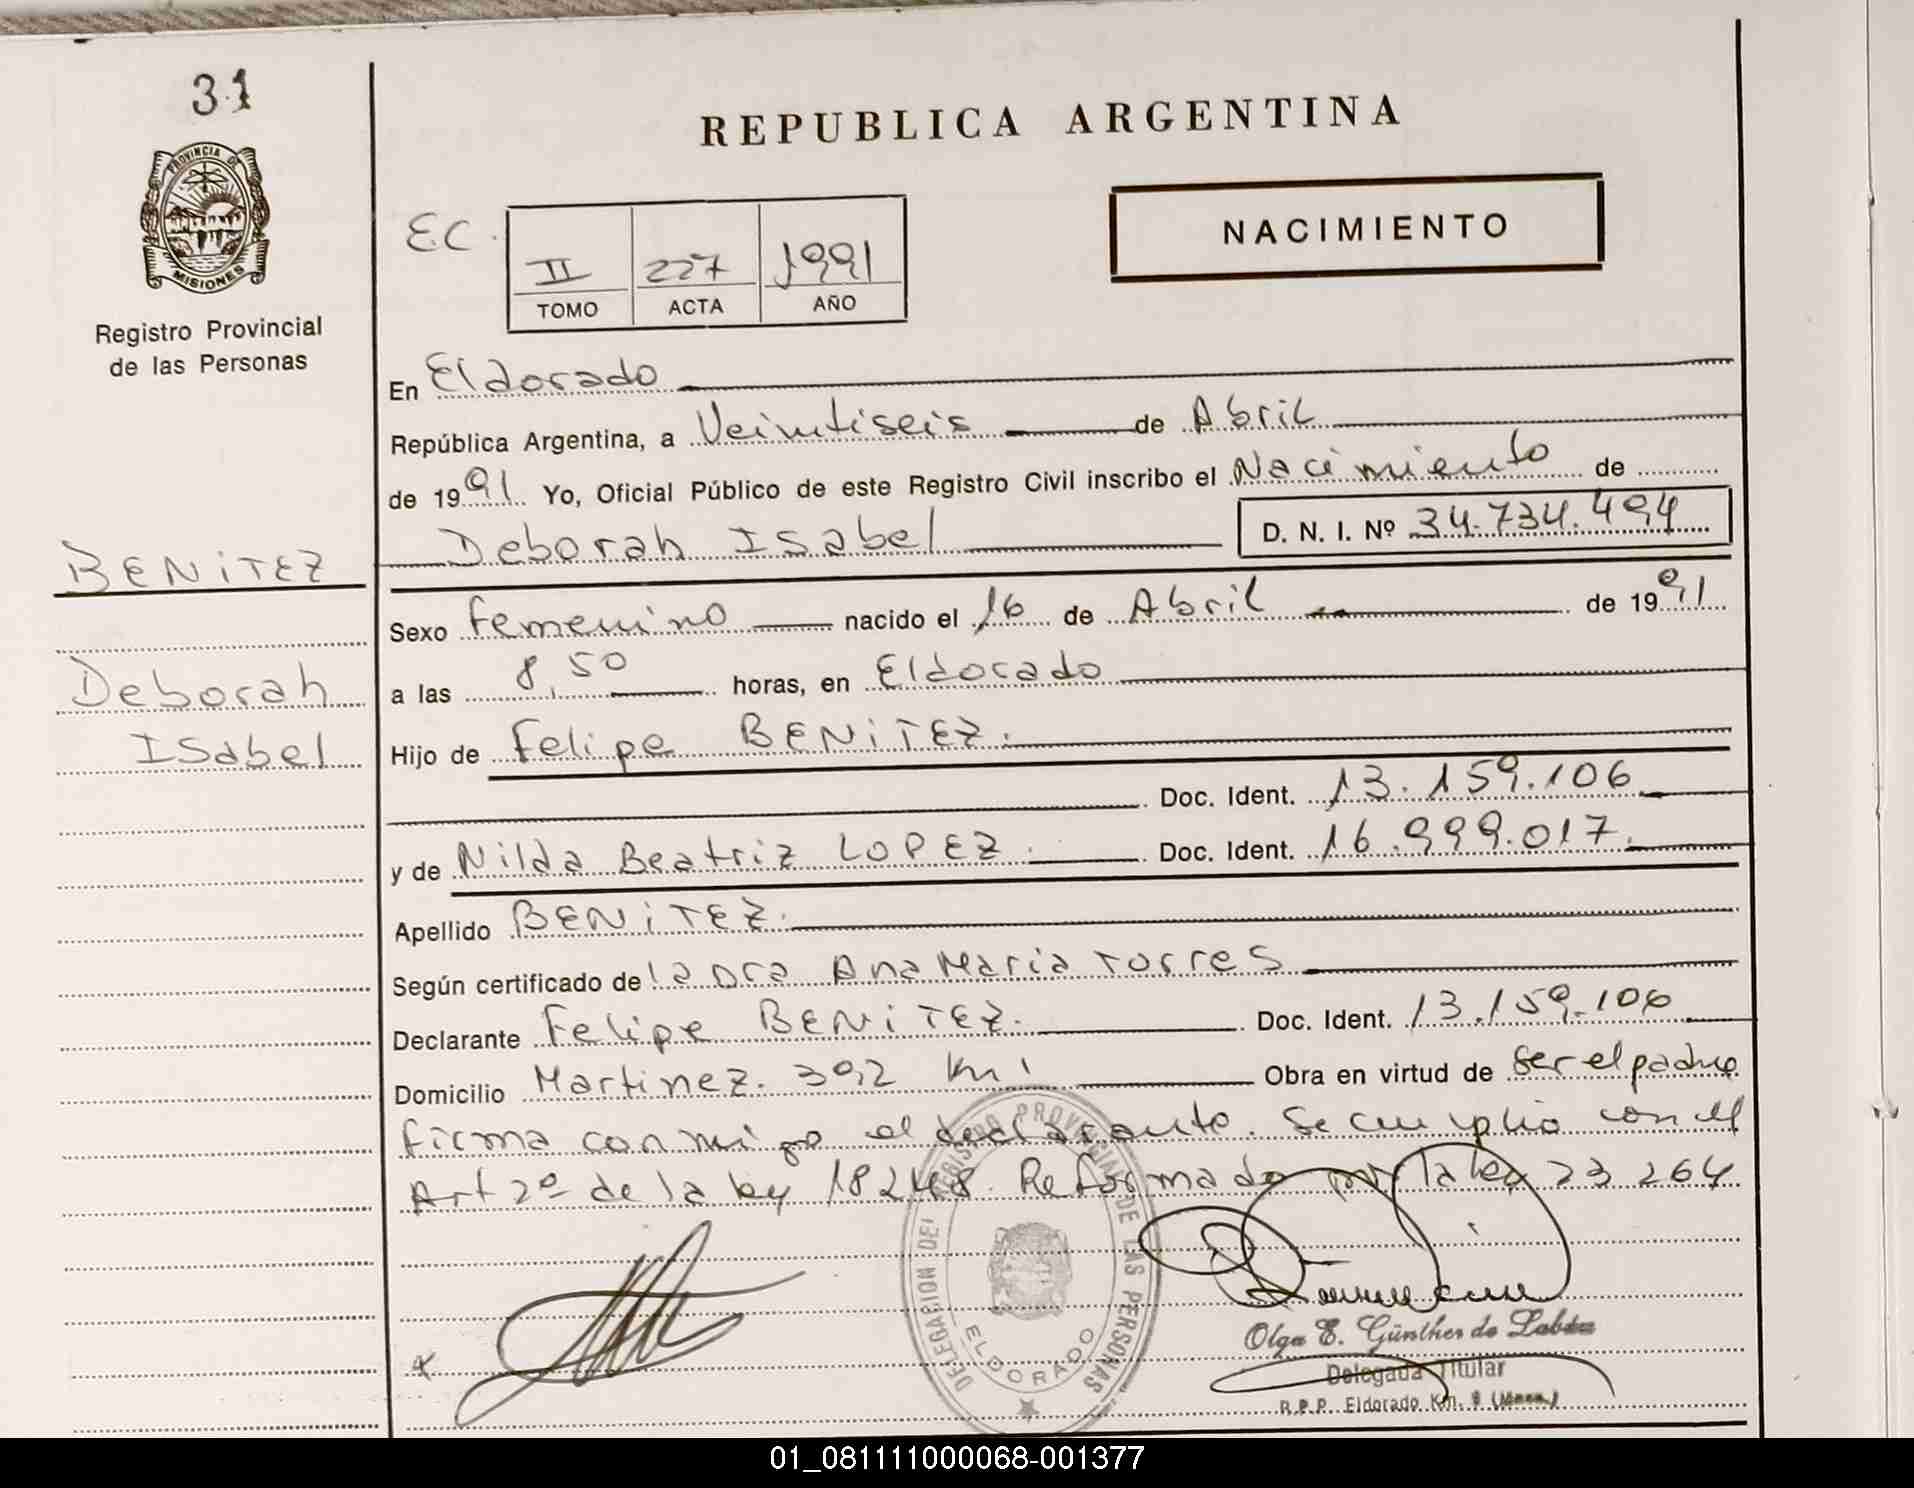 31
PROVINCIA DE
MISIONES
Registro Provincial
de las Personas
REPUBLICA ARGENTINA
NACIMIENTO
EC.
II 227 1991
TOMO ACTA AÑO
En Eldorado
República Argentina, a Veintiseis de Abril
de 1991 Yo, Oficial Público de este Registro Civil inscribo el Nacimiento de
Deborah Isabel D. N. I. Nº 34.734.494
BENITEZ
Sexo Femenino nacido el 16 de Abril de 1991
Deborah
a las 8,50 horas, en Eldorado
Isabel
Hijo de Felipe BENITEZ.
Doc. Ident. 13.159.106
y de Nilda Beatriz LOPEZ. Doc. Ident. 16.999.017.
Apellido BENITEZ.
Según certificado de la Dra Ana Maria Torres
Declarante Felipe BENITEZ. Doc. Ident. 13.159.106
Domicilio Martinez. 30,2 Km Obra en virtud de ser el padre
firma conmigo el declarante. Se cumplio con el
Art 2º de la ley 18248. Reformado por la ley 23264
DELEGACION DEL REGISTRO PROVINCIAL DE LAS PERSONAS
ELDORADO
Olga E. Günther de
Delegada Titular
R.P.P. Eldorado Km. 9 (Mnes.)
01_081111000068-001377